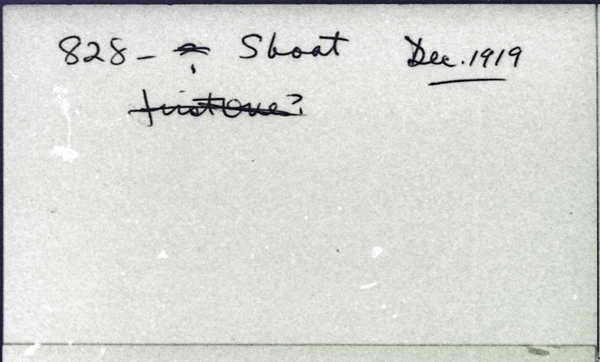 828- Shoat Dec. 1919
first one?